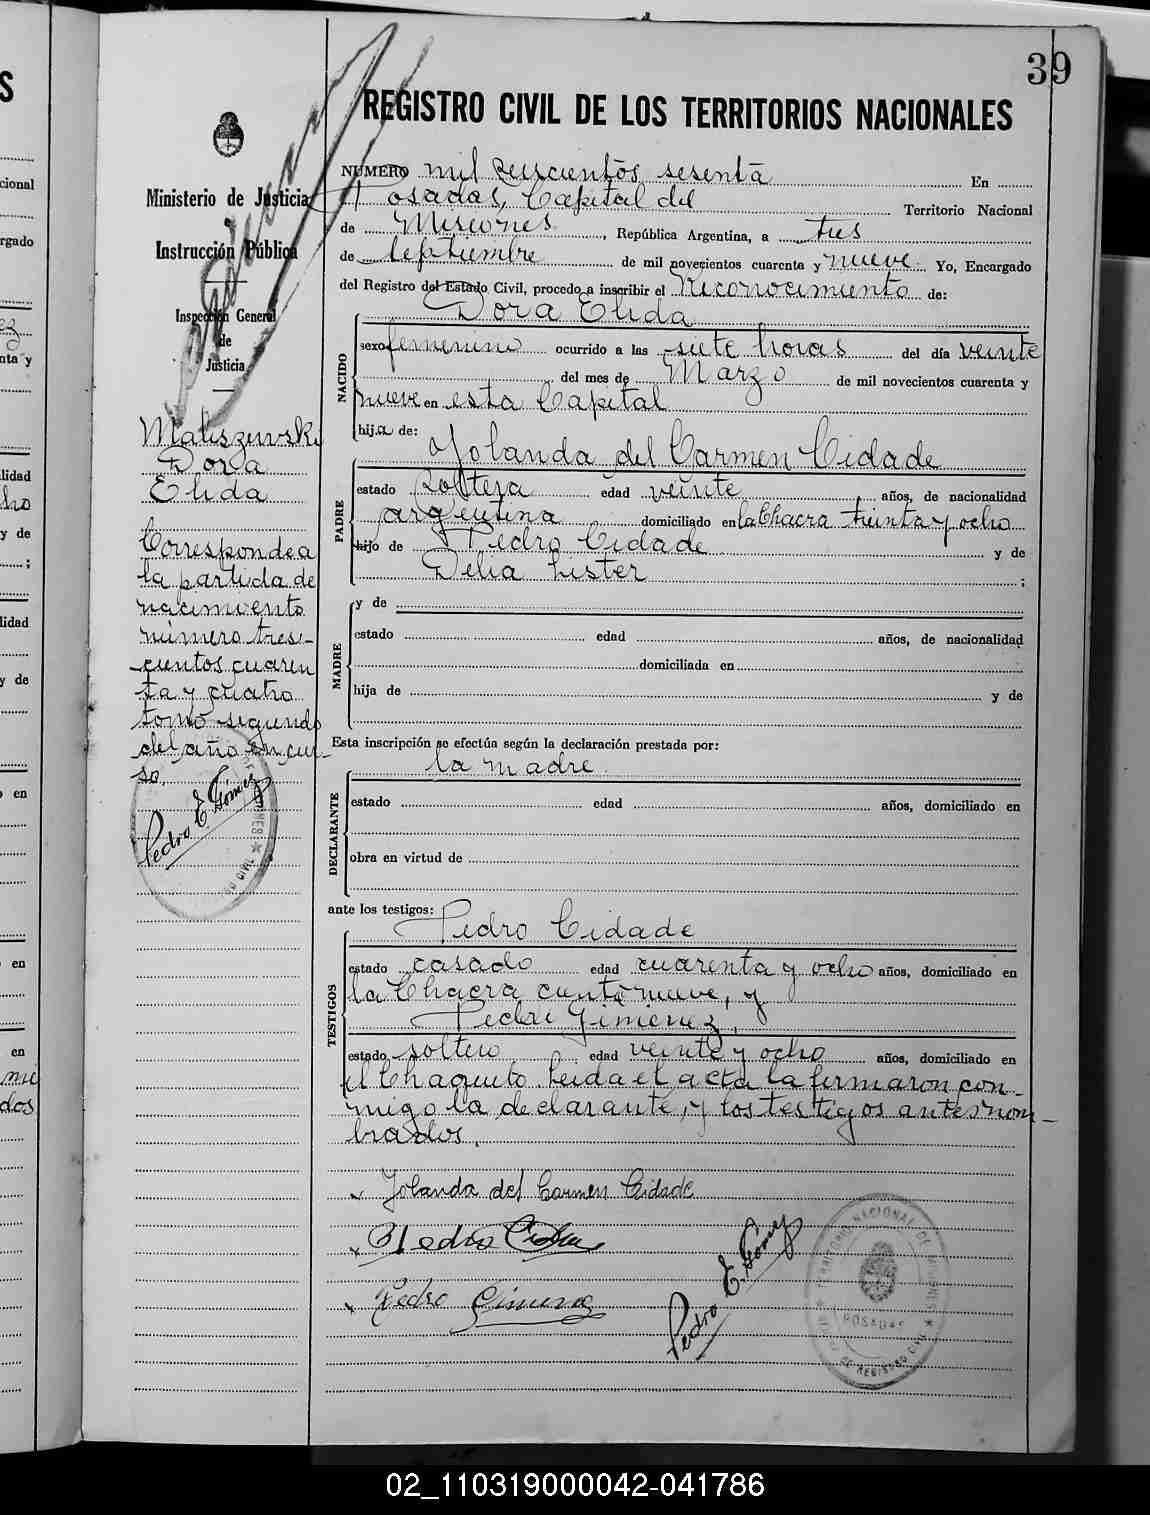 39
REGISTRO CIVIL DE LOS TERRITORIOS NACIONALES
Ministerio de Justicia
e
Instrucción Pública
Inspección General
de
Justicia
Maliszewski
Dora
Elida
Corresponde a
la partida de
nacimiento
número tres-
cientos cuaren
ta y cuatro
tomo segundo
del año en cur-
so.
Pedro E. Gómez
NUMERO mil seiscientos sesenta En
Posadas, Capital del Territorio Nacional
de Misiones, República Argentina, a tres
de septiembre de mil novecientos cuarenta y nueve. Yo, Encargado
del Registro del Estado Civil, procedo a inscribir el Reconocimiento de:
Dora Elida
NACIDO
sexo femenino ocurrido a las siete horas del día veinte
del mes de Marzo de mil novecientos cuarenta y
nueve en esta Capital
hija de:
Yolanda del Carmen Cidade
PADRE
estado soltera edad veinte años, de nacionalidad
argentina domiciliado en la Chacra treinta y ocho
hijo de Pedro Cidade y de
Delia Lister ;
MADRE
y de
estado edad años, de nacionalidad
domiciliada en
hija de y de
Esta inscripción se efectúa según la declaración prestada por:
la madre.
DECLARANTE
estado edad años, domiciliado en
obra en virtud de
ante los testigos:
Pedro Cidade
TESTIGOS
estado casado edad cuarenta y ocho años, domiciliado en
la Chacra cuarenta nueve, y
Pedro Giménez,
estado soltero edad veinte y ocho años, domiciliado en
el Chaquito. Leida el acta la firmaron con-
migo la declarante, y los testigos antes nom-
brados.
Yolanda del Carmen Cidade
Pedro Cidade
Pedro Gimenez
Pedro E. Gómez
TERRITORIO NACIONAL DE MISIONES
POSADAS
REGISTRO CIVIL
02_110319000042-041786